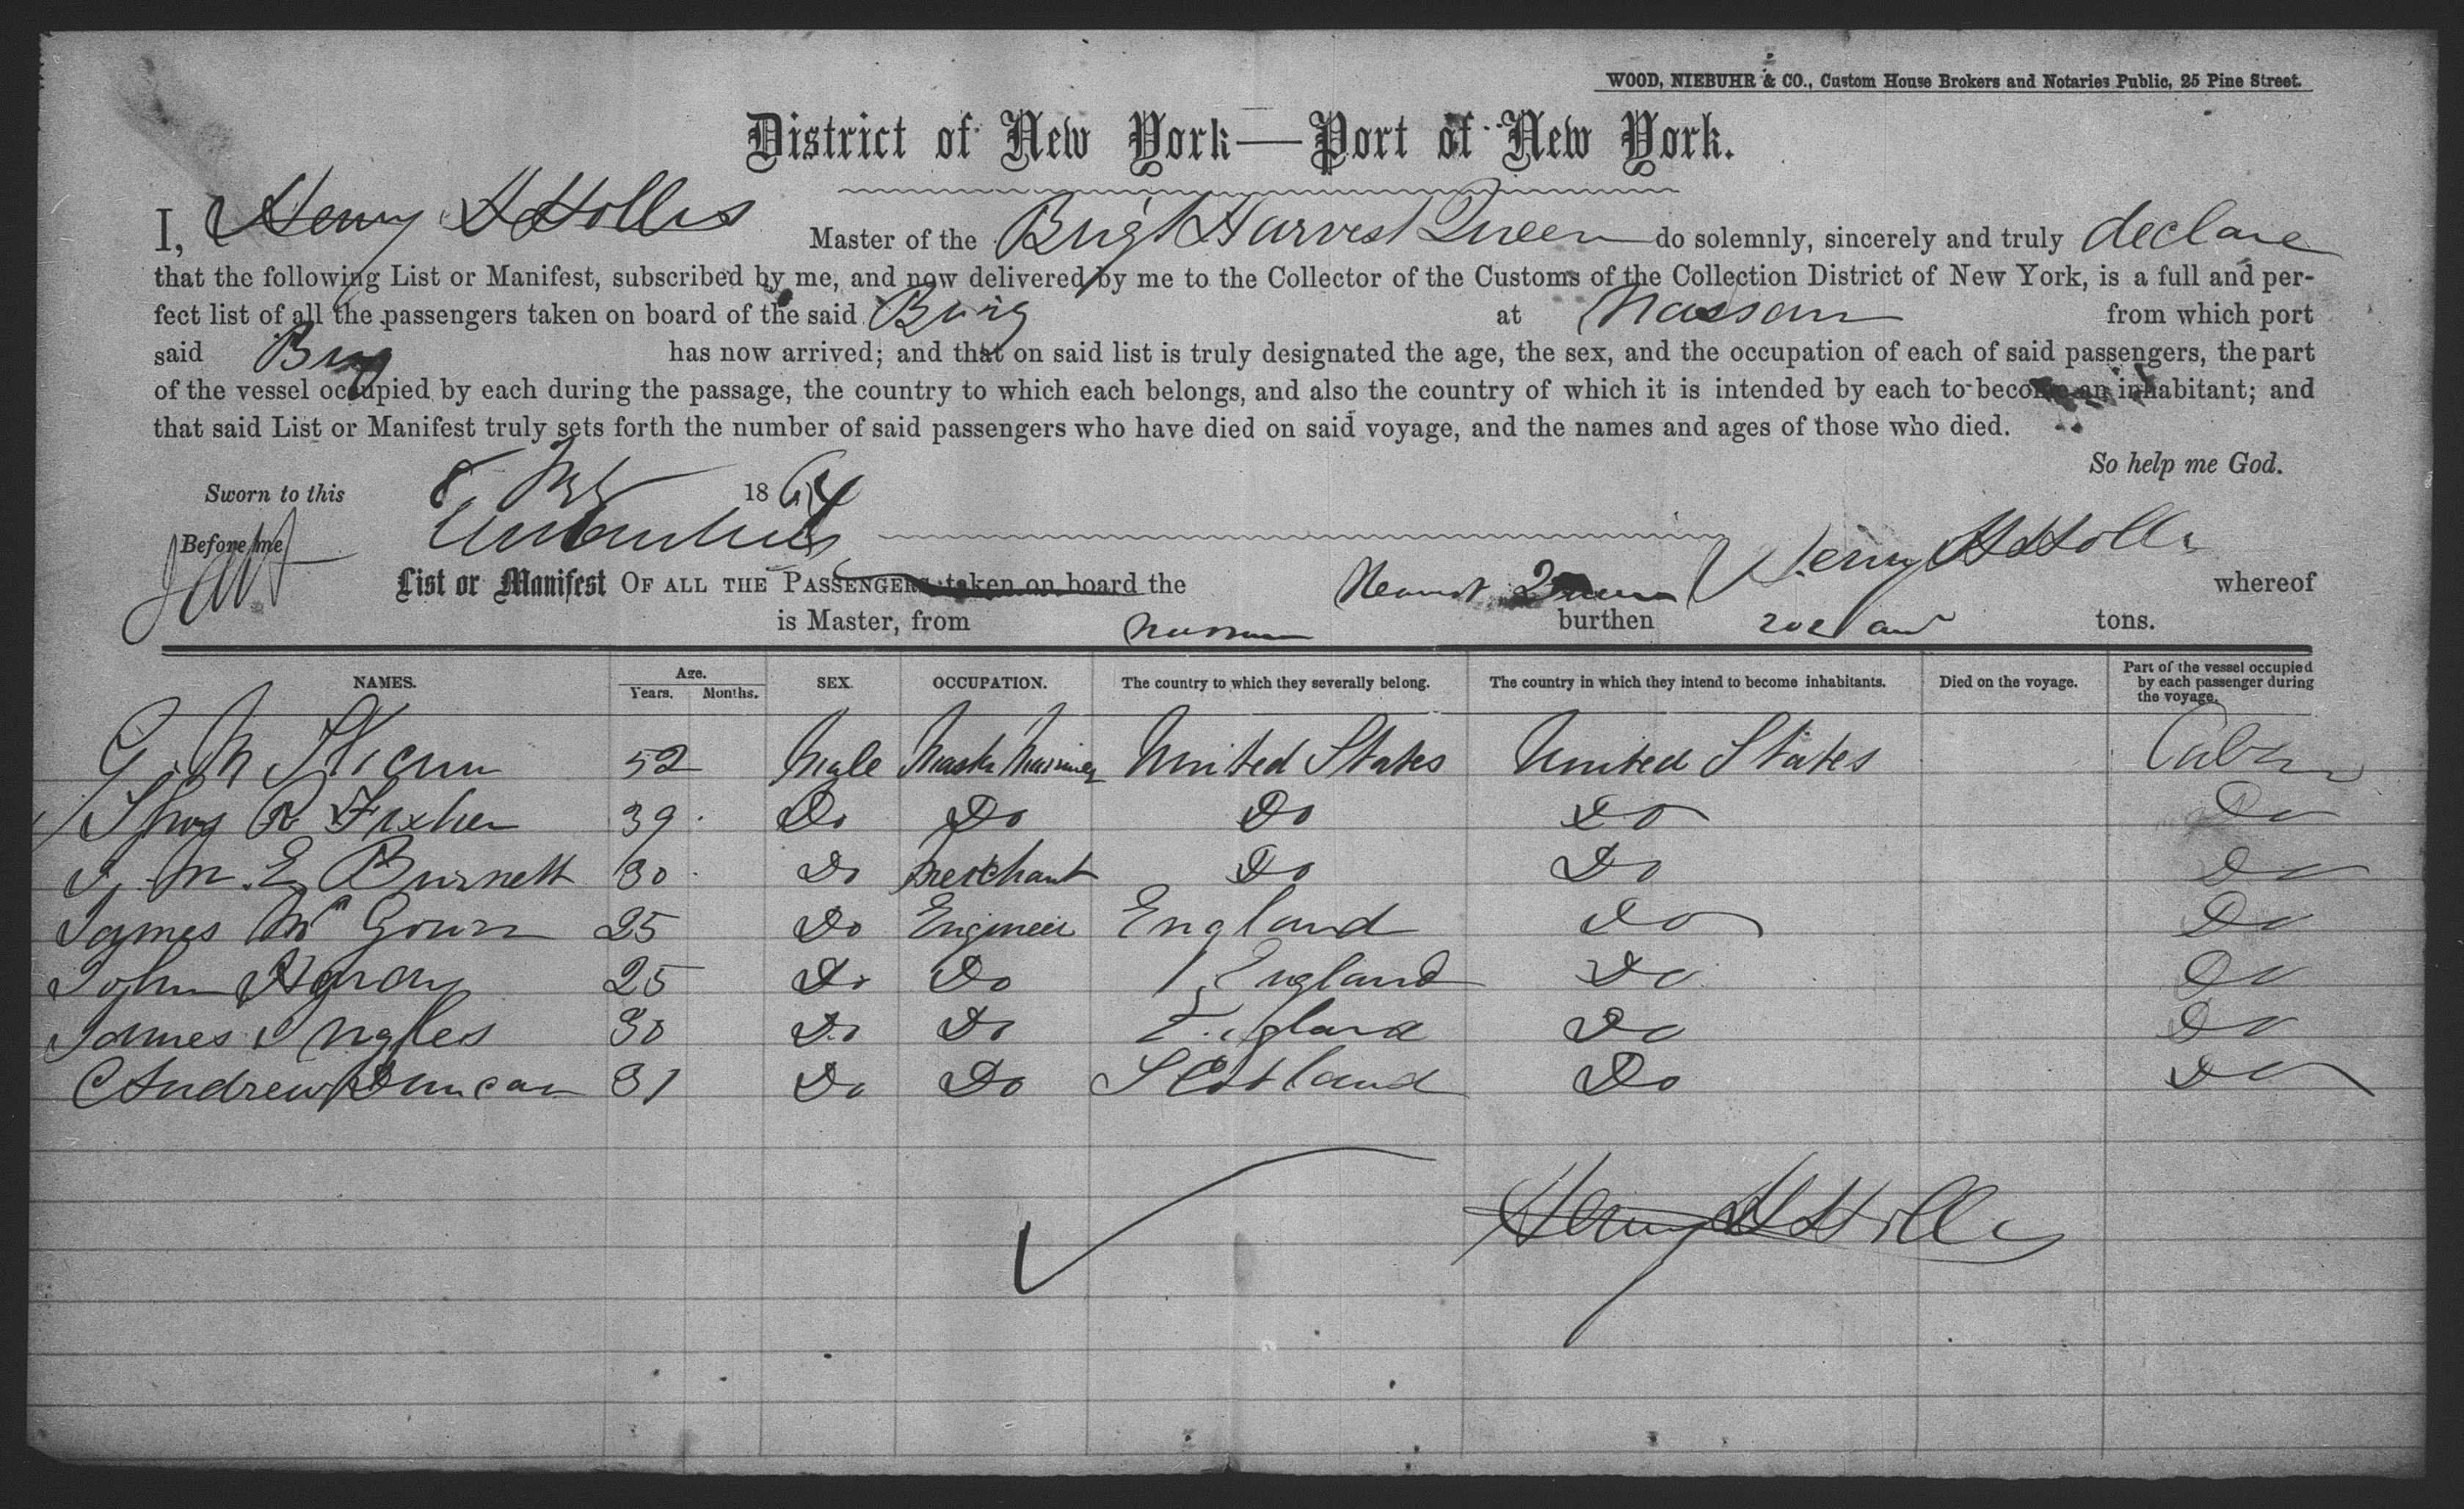 WOOD, NIEBUHR & CO., Custom House Brokers and Notaries Public, 25 Pine Street.
District of New York—Port of New York.
I, Henry H Hollis Master of the Brigt Harvest Queen do solemnly, sincerely and truly declare
that the following List or Manifest, subscribed by me, and now delivered by me to the Collector of the Customs of the Collection District of New York, is a full and per-
fect list of all the passengers taken on board of the said Brig at Nassau from which port
said Brig has now arrived; and that on said list is truly designated the age, the sex, and the occupation of each of said passengers, the part
of the vessel occupied by each during the passage, the country to which each belongs, and also the country of which it is intended by each to become an inhabitant; and
that said List or Manifest truly sets forth the number of said passengers who have died on said voyage, and the names and ages of those who died.
So help me God.
Sworn to this 8 1864
Before me Henry H Hollis
List or Manifest OF ALL THE PASSENGERS taken on board the Harvest Queen whereof
is Master, from Nassau burthen tons.
NAMES. Age. Years. Months. SEX. OCCUPATION. The country to which they severally belong. The country in which they intend to become inhabitants. Died on the voyage. Part of the vessel occupied by each passenger during the voyage.
G. M 52 Male Master Mariner United States United States Cabin
R 39 Do Do Do Do Do
M. E Burnett 30 Do Merchant Do Do Do
James Mc Gown 25 Do Engineer England Do Do
John Hardy 25 Do Do England Do Do
James Ingles 30 Do Do England Do Do
Andrew Duncan 31 Do Do Scotland Do Do
Henry H Hollis